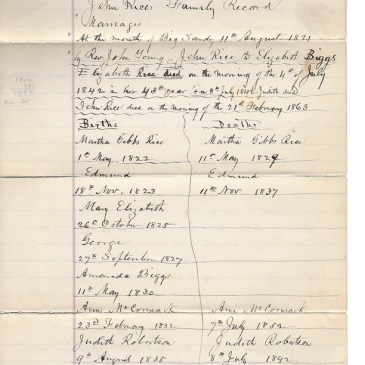 John Rice's Family Record
Marriages
At the mouth of Big Sandy 11th August 1821
by Rev John Young - John Rice to Elizabeth Biggs
Elizabeth Rice died on the morning of the 4th of July
1842 in her 40th year on 8th July 1842 Judith died
John Rice died on the morning of the 21st February 1863
Births Deaths
Martha Gibbs Rice Martha Gibbs Rice
1st May 1822 11th May 1829
Edmund Edmund
18th Nov, 1823 11th Nov 1837
Mary Elizabeth
26th October 1825
George
27th September 1827
Amanda Biggs
11th May 1830
Ann McCormack Ann McCormack
23rd February 1832 7th July 1852
Judith Robertson Judith Robertson
9th August 1835 8th July 1842